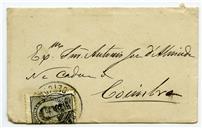 Exmo Snr Antonio José d'Almeida
Na Cadea de
Coimbra